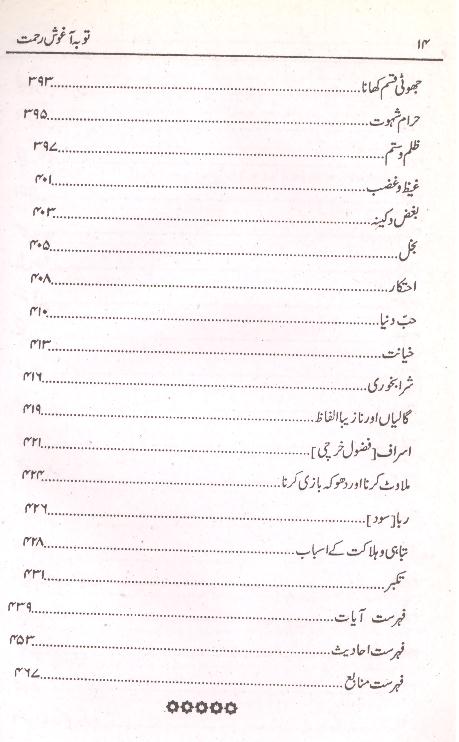 ۱۴ توبہ آغوش رحمت
جھوٹی قسم کھانا ۳۹۳
حرام شہوت ۳۹۵
ظلم و ستم ۳۹۷
غیظ و غضب ۴۰۱
بغض و کینہ ۴۰۳
بخل ۴۰۵
احتکار ۴۰۸
حبّ دنیا ۴۱۰
خیانت ۴۱۳
شرابخوری ۴۱۶
گالیاں اور نازیبا الفاظ ۴۱۹
اسراف [فضول خرچی] ۴۲۱
ملاوٹ کرنا اور دھوکہ بازی کرنا ۴۲۴
ربا [سود] ۴۲۶
تباہی و ہلاکت کے اسباب ۴۲۸
تکبر ۴۳۱
فہرست آیات ۴۳۹
فہرست احادیث ۴۵۳
فہرست منابع ۴۶۷